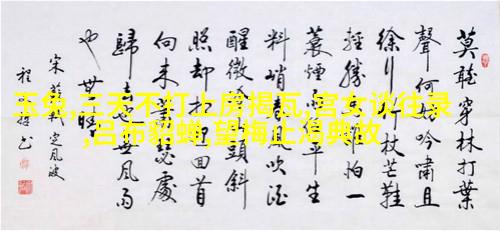 莫聽穿林打葉
聲何妨吟嘯且
徐行竹杖芒鞋
輕勝馬誰怕一
蓑煙雨任平生
料峭春風吹酒
醒微冷山頭斜
照却相迎回首
向来蕭瑟處
歸去也無風雨
也無晴
宋蘇軾定風波
玉兔,三天不打上房揭瓦,宫女谈往录
,吕布貂蝉,望梅止渴典故